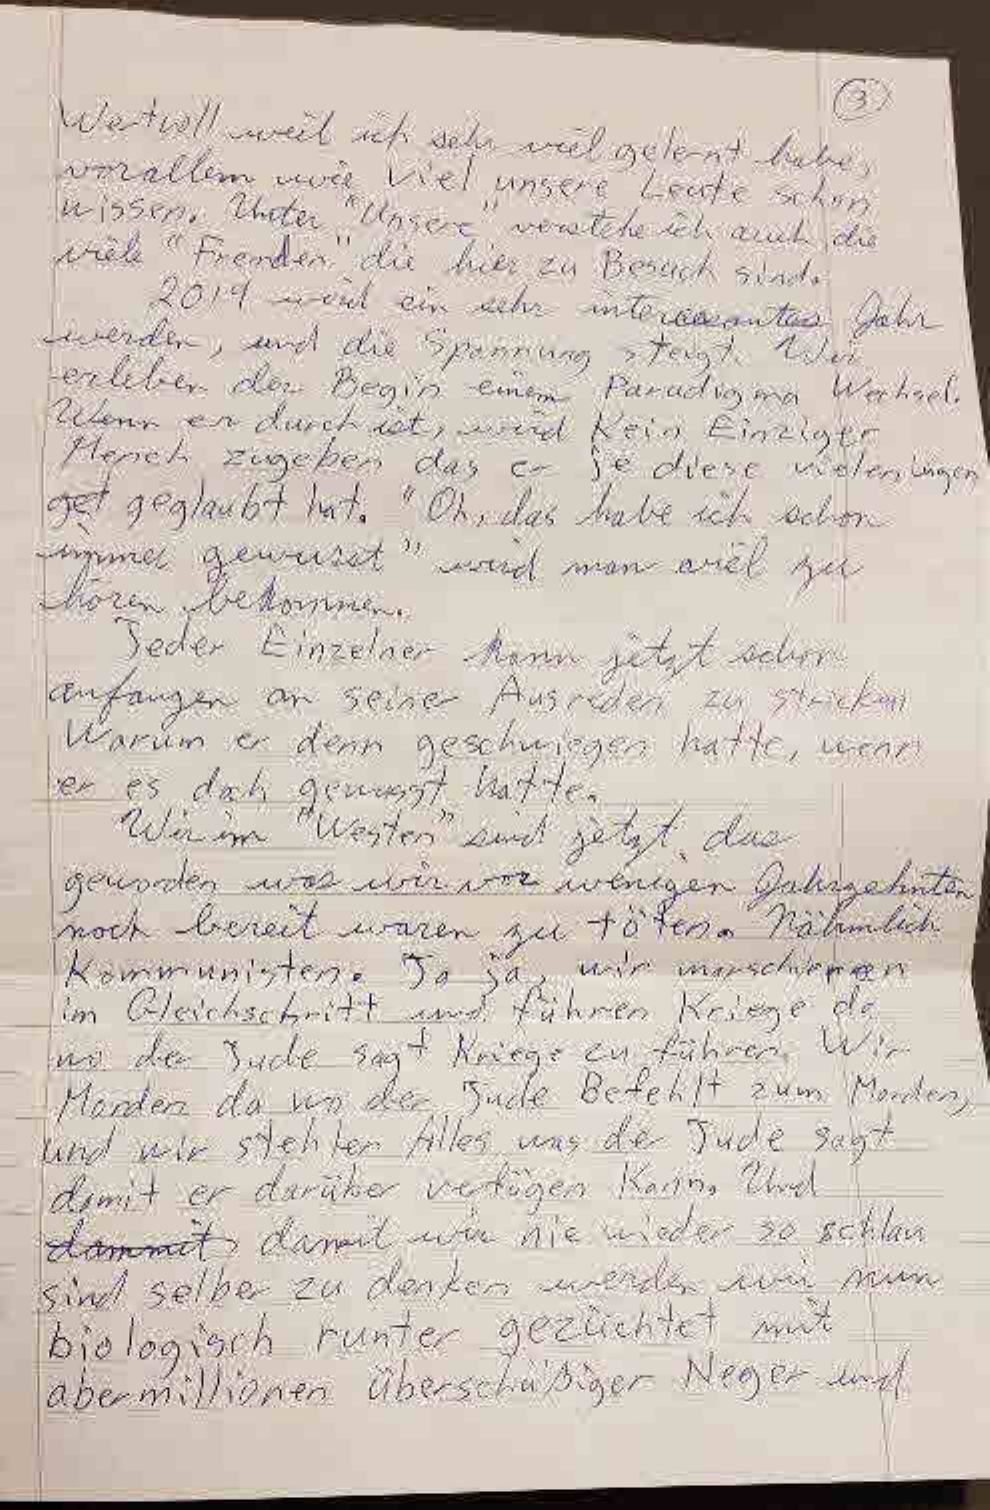 3
Wertvoll weil ich sehr viel gelernt habe,
vorallem wie viel unsere Leute schon
wissen. Unter "Unsere" verstehe ich auch die
viele "Fremden" die hier zu Besuch sind.
2019 wird ein sehr interessantes Jahr
werden, und die Spannung steigt. Wir
erleben den Begin einem Paradigma Wechsel.
Wenn er durch ist, wird Kein Einziger
Mensch zugeben das er je diese vielen lügen
get geglaubt hat. "Oh, das habe ich schon
immer gewusst" wird man viel zu
hören bekommen.
Jeder Einzelner kann jetzt schon
anfangen an seiner Ausreden zu stricken
Warum er denn geschwiegen hatte, wenn
er es doch gewusst hatte.
Wir im "Westen" sind jetzt das
geworden was wir vor wenigen Jahrzehnten
noch bereit waren zu töten. Nähmlich
Kommunisten. Ja ja, wir marschieren
im Gleichschritt und führen Kriege da
wo der Jude sagt Kriege zu führen. Wir
Morden da wo der Jude Befehlt zum Morden,
und wir stehlen Alles was der Jude sagt
damit er darüber verfügen Kann. Und
dammit damit wir nie wieder so schlau
sind selber zu denken werden wir nun
biologisch runter gezüchtet mit
abermillionen überschüßiger Neger und